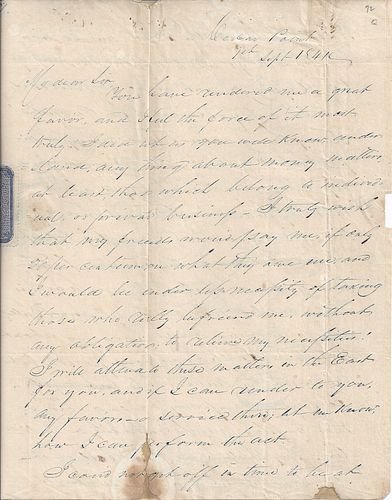 Cedar Point
9th Sept 1841
My dear Sir,
You have rendered me a great
favor, and I feel the force of it most
truly. I did not as you well know under
stand, any thing about money matters
at least those which belong to individ
uals, or private business — I truly wish
that my friends would pay me, if only
cent on what they owe me, and
I would be under less necessity of taxing
those who only befriend me, without
any obligation, to relieve my necessities.
I will attend to these matters in the East
for you, and if I can render to you,
any favor or service there, let me know,
how I can perform the act.
I could not get off in time to be at